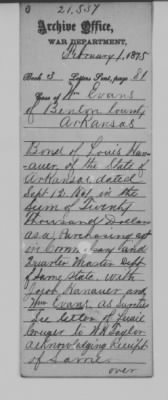 21.557
Archive Office,
WAR DEPARTMENT,
February 1, 1875
Book 3 Letters Sent, page 81
Case of Wm Evans
of Benton County
Arkansas
Bond of Louis Han-
auer of the State of
Arkansas dated
Sept 12. 1861 in the
sum of Twenty
thousand Dollars
as a Purchasing agt
in Comm. Secy and
Quarter Master Dept
of Same State. with
Joseph Hanauer and
Wm Evans as Sureties
See letter of
to W.H. Taylor
acknowledging Receipt
of Same.
over